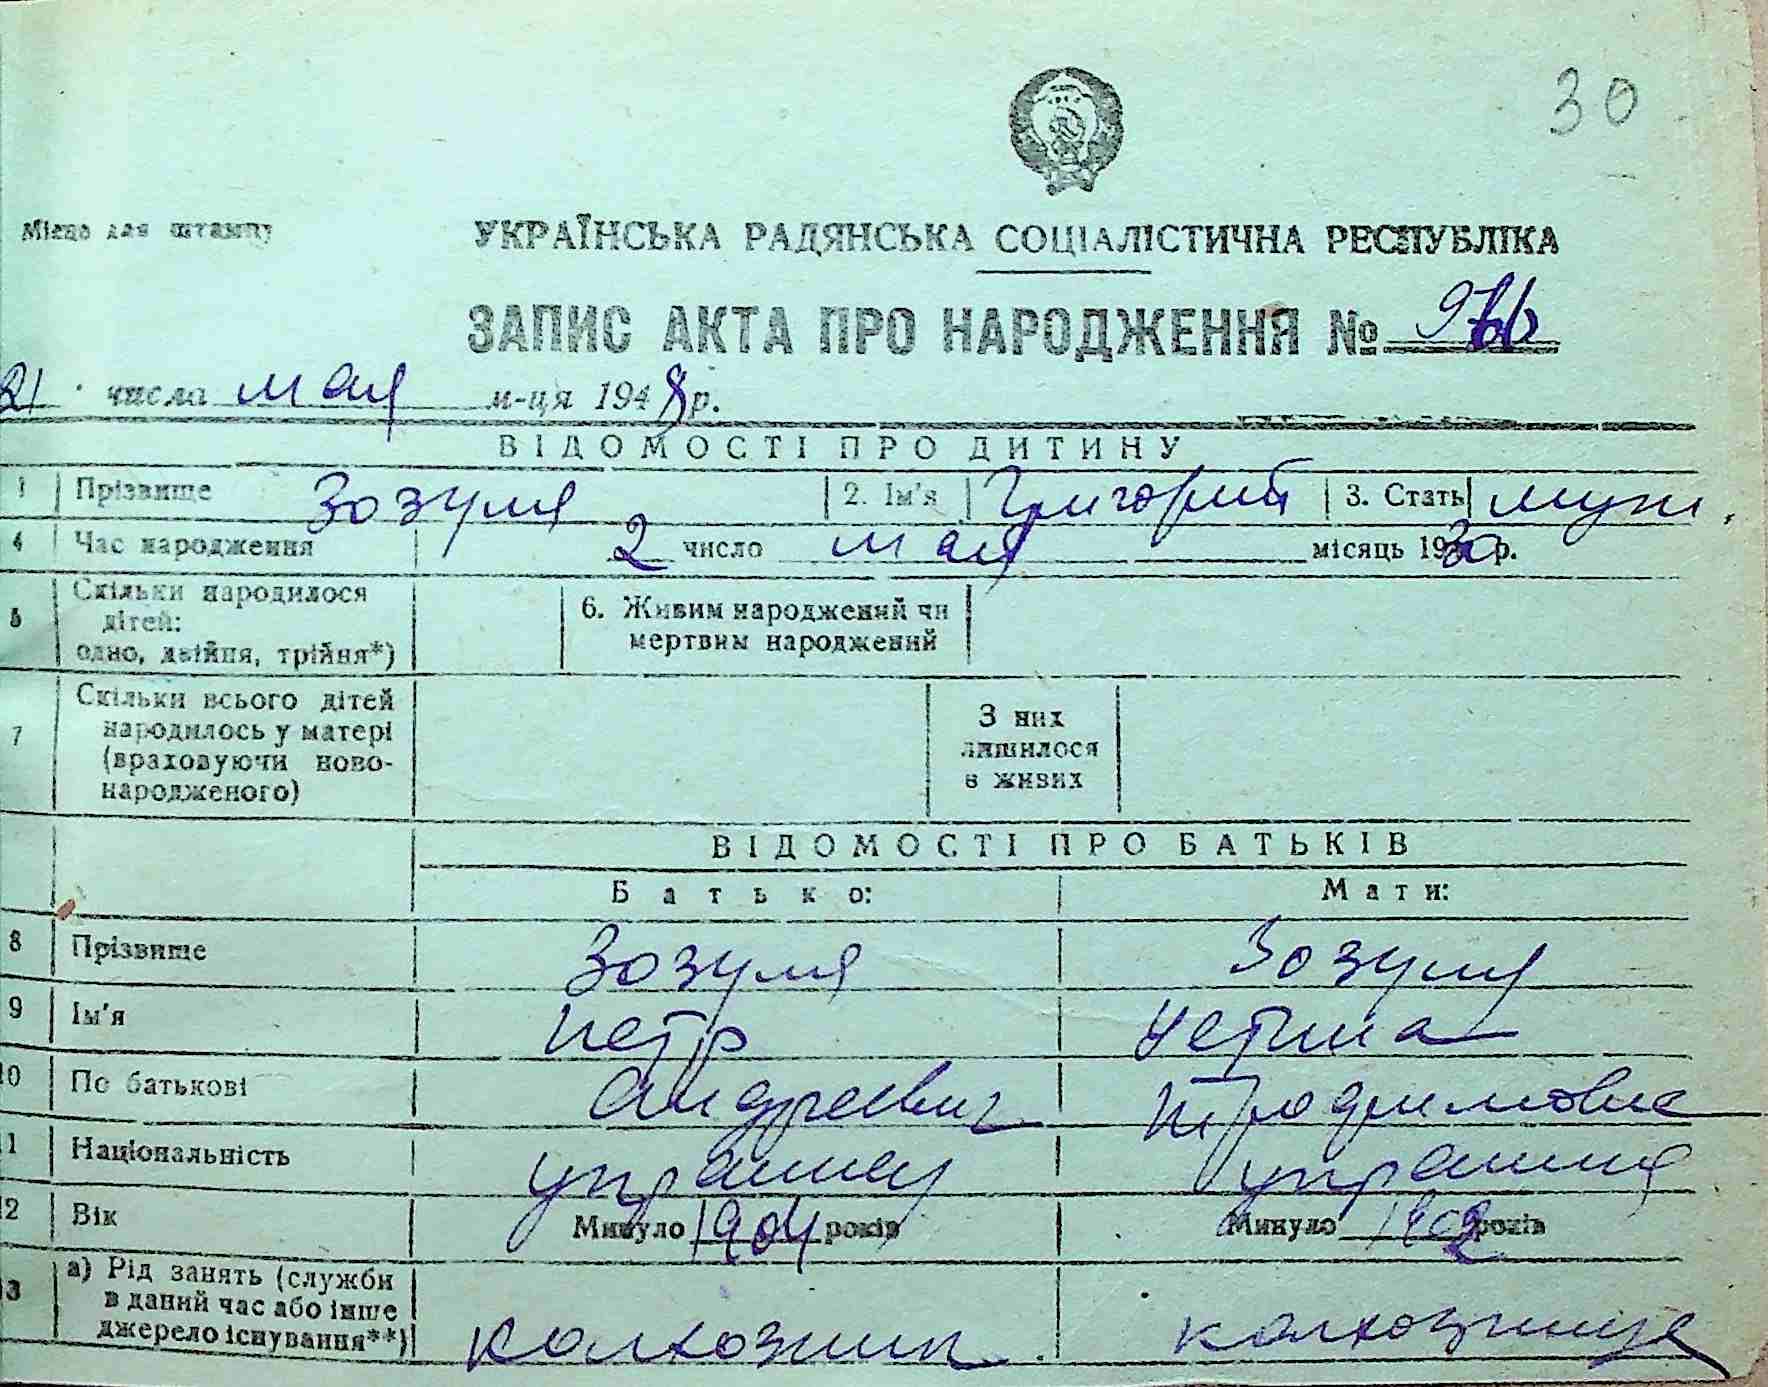 30
Місце для штампу
УКРАЇНСЬКА РАДЯНСЬКА СОЦІАЛІСТИЧНА РЕСПУБЛІКА
ЗАПИС АКТА ПРО НАРОДЖЕННЯ №
21 числа мая м-ця 1948 р.
ВІДОМОСТІ ПРО ДИТИНУ
1 Прізвище Зозуля 2. Ім'я Григорий 3. Стать муж.
4 Час народження 2 число мая місяць 1930 р.
5 Скільки народилося дітей: одно, двійня, трійня*) 6. Живим народжений чи мертвим народжений
7 Скільки всього дітей народилось у матері (враховуючи новонародженого) З них лишилося в живих
ВІДОМОСТІ ПРО БАТЬКІВ
Батько: Мати:
8 Прізвище Зозуля Зозуля
9 Ім'я Петр Устина
10 По батькові Андреевич
11 Національність украинец украинка
12 Вік Минуло 1904 років Минуло 1902 років
13 а) Рід занять (служби в даний час або інше джерело існування**) колхозник. колхозница